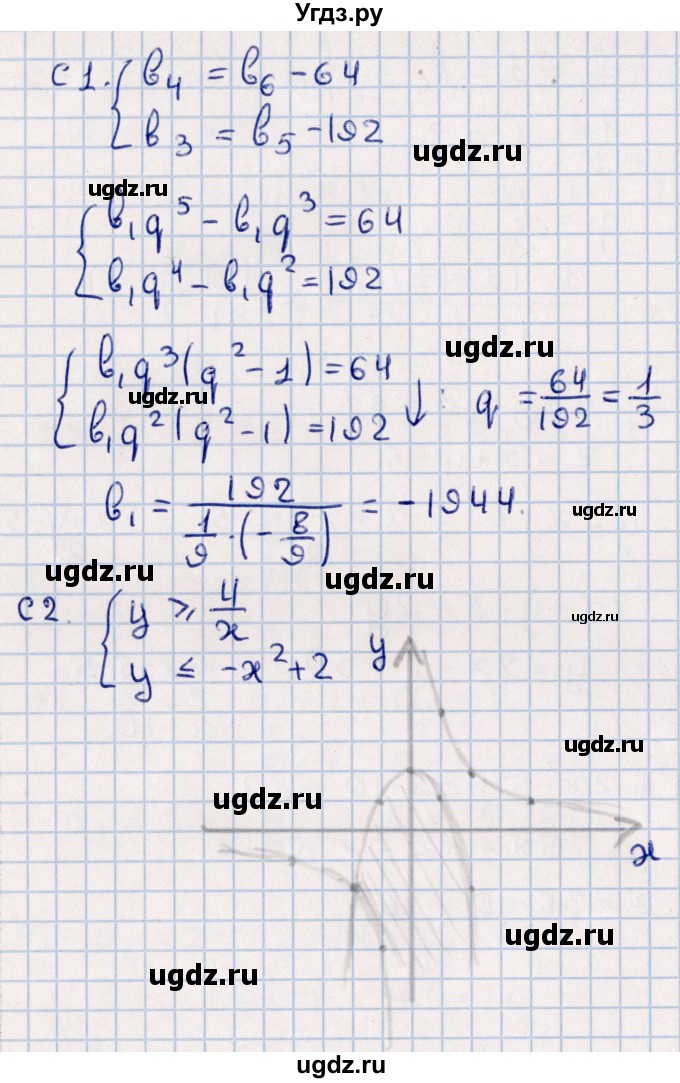 Угдз.ру
С1. { b₄ = b₆ - 64
b₃ = b₅ - 192
ugdz.ru
ugdz.ru
{ b₁q⁵ - b₁q³ = 64
b₁q⁴ - b₁q² = 192
ugdz.ru
{ b₁q³(q² - 1) = 64
ugdz.ru
b₁q²(q² - 1) = 192 ↓ : q = 64/192 = 1/3
b₁ = 192/(1/9 · (-8/9)) = -1944.
ugdz.ru
ugdz.ru
ugdz.ru
С2. { y ≥ 4/x
ugdz.ru
y ≤ -x² + 2
y
ugdz.ru
ugdz.ru
x
ugdz.ru
ugdz.ru
ugdz.ru